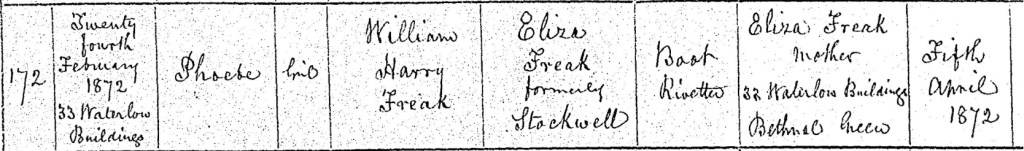 172
Twenty
fourth
February
1872
33 Waterlow
Buildings
Phoebe
Girl
William
Harry
Freak
Eliza
Freak
formerly
Stockwell
Boot
Rivetter
Eliza Freak
Mother
33 Waterlow Buildings
Bethnal Green
Fifth
April
1872